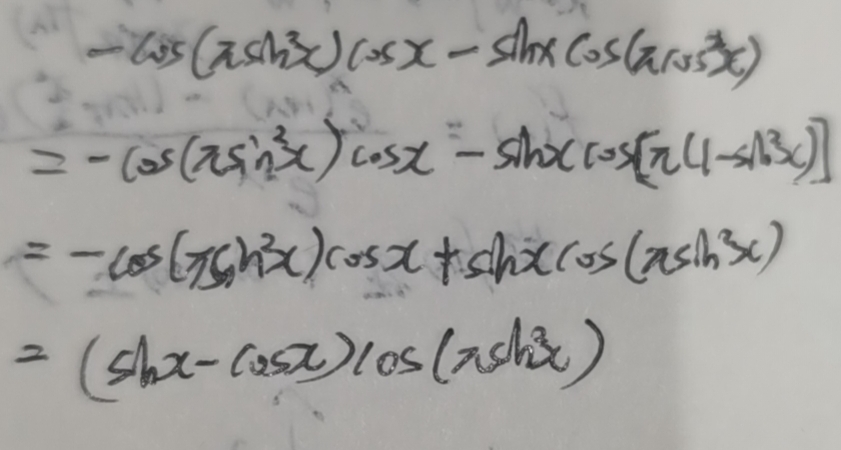 -cos(πsin²x)cosx - sinx cos(πcos²x)
= -cos(πsin²x)cosx - sinx cos[π(1-sin²x)]
= -cos(πsin²x)cosx + sinx cos(πsin²x)
= (sinx - cosx)cos(πsin²x)